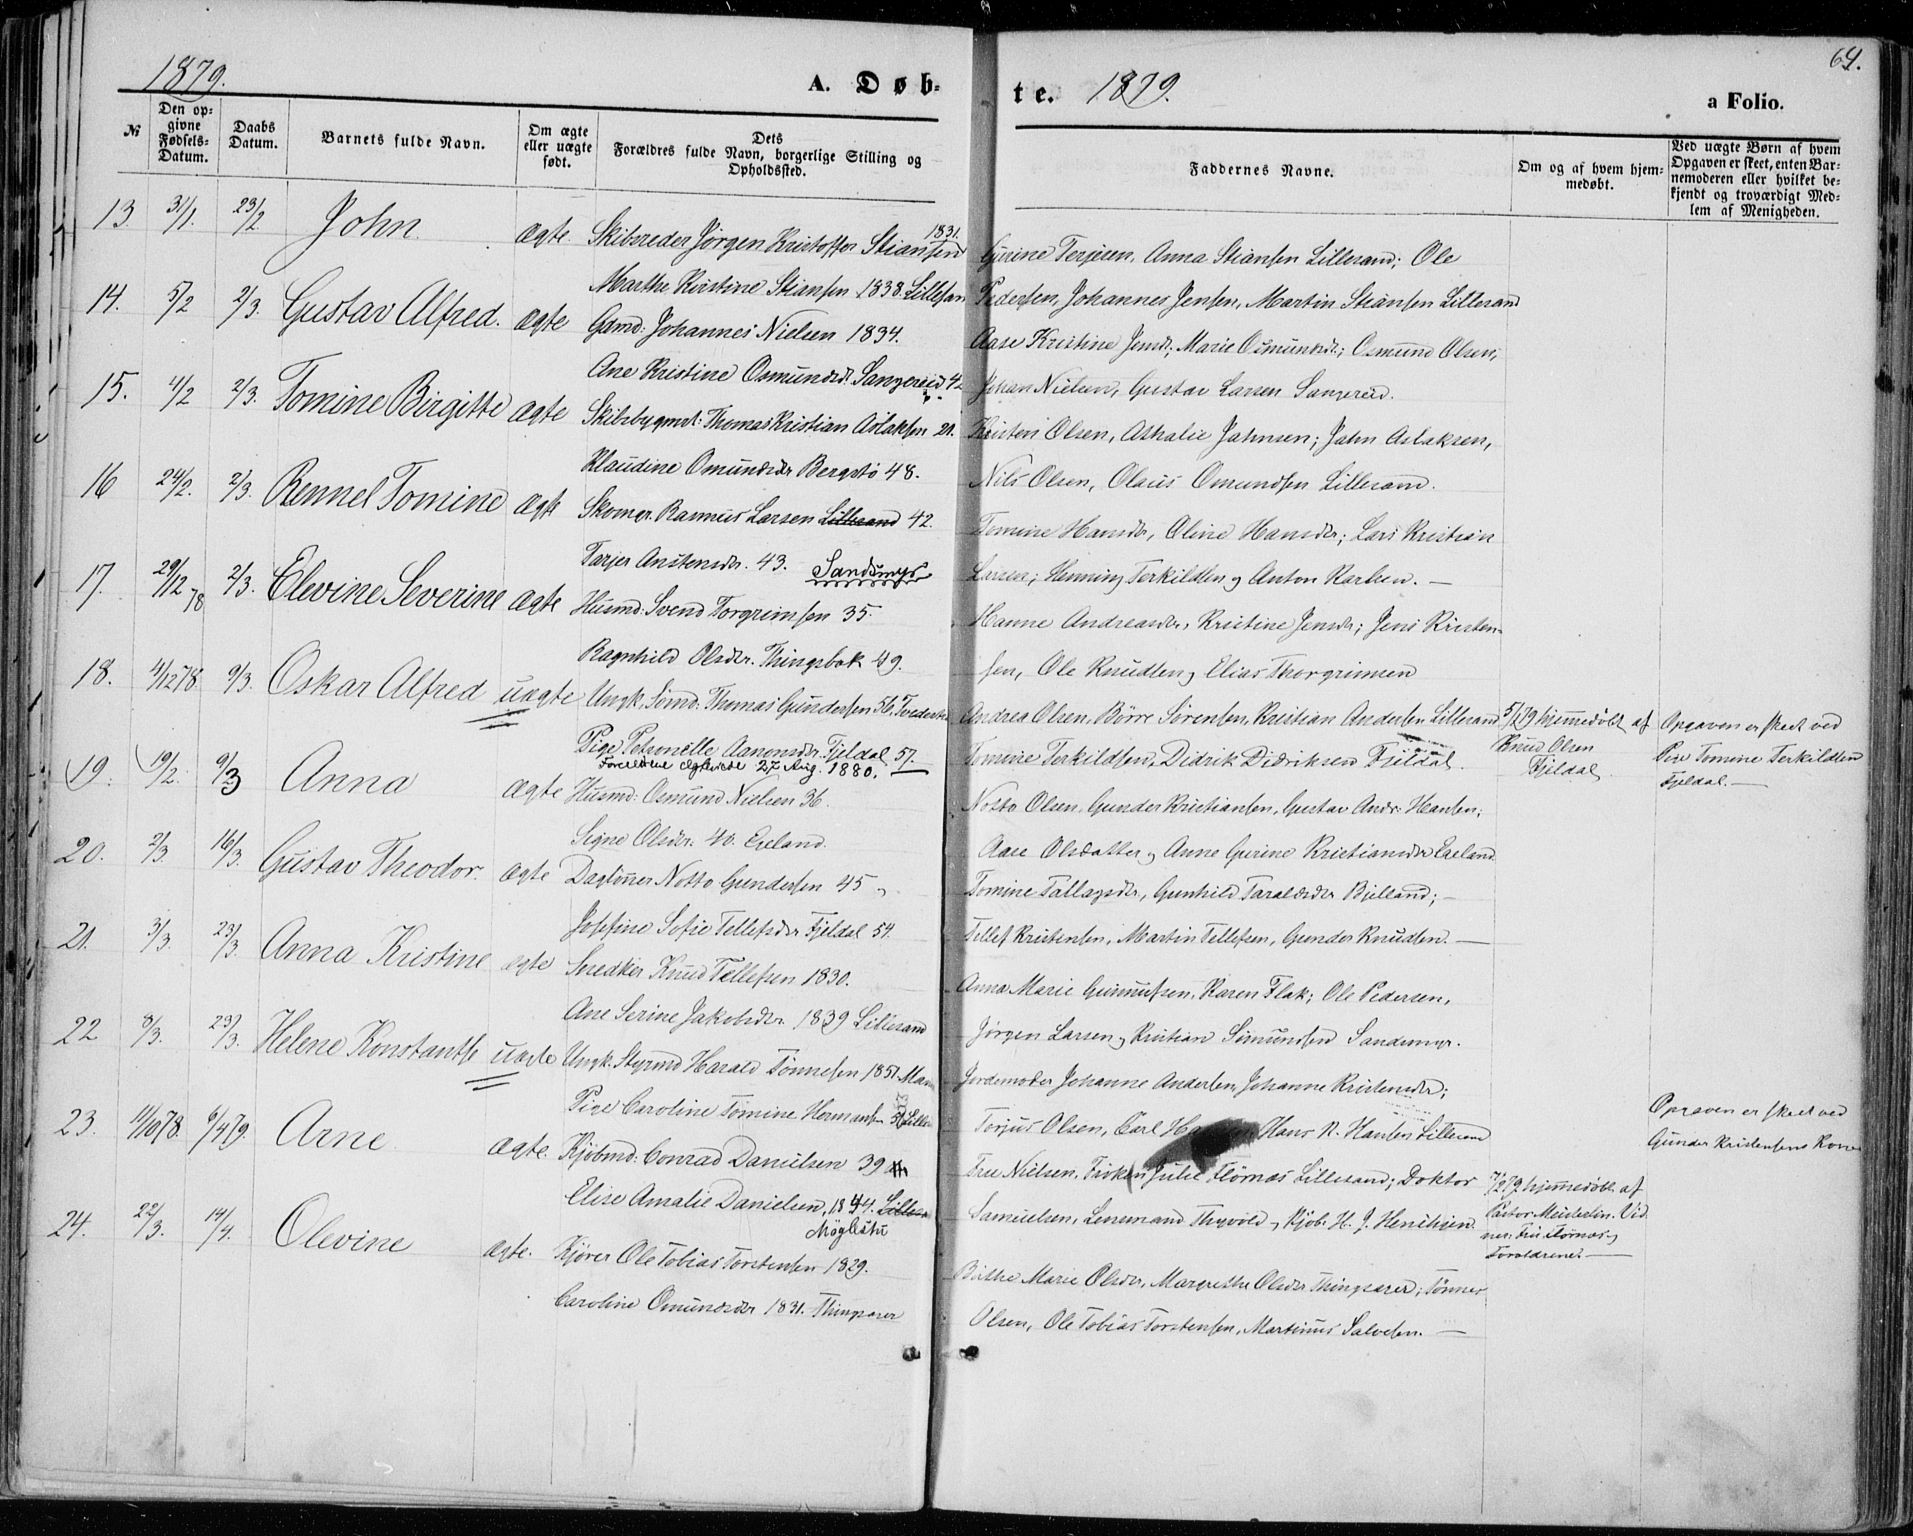 1879.
A. Døb-
№
Den op-
givne
Fødsels-
Datum.
Daabs
Datum.
Barnets fulde Navn.
Om ægte
eller uægte
født.
Dets
Forældres fulde Navn, borgerlige Stilling og
Opholdssted.
13. 31/1. 23/2 John. ægte. Skibsreder Jørgen Kristoffer Stiansen 1831.
Marthe Kristine Stiansen 1838. Lillesan
14. 5/2 2/3. Gustav Alfred. ægte Gamd: Johannes Nielsen 1834.
Ane Kristine Osmundsdr. Sangereid 42
15. 4/2 2/3. Tomine Birgitte ægte Skibsbygmst: Thomas Kristian Aslaksen 21.
Klaudine Omundsdr Bergstø 48.
16 24/2. 2/3. Rennel Tomine ægte Skomgr. Rasmus Larsen Lillesand 42.
Tarjer Anstensdr. 43. Sandsmyr
17. 29/12 78 2/3. Elevine Severine ægte Husmd: Svend Torgrimsen 35.
Ragnhild Olsdr. Thingsbak 49.
18. 4/12 78. 9/3. Oskar Alfred uægte Ungk. Sømd. Thomas Gundersen 56, Tvedestr
Pige Petronelle Aanonsdr. Fjeldal 57.
Forældrene ægteviede 27 Aug. 1880.
19. 19/2. 9/3 Anna ægte Husmd: Osmund Nielsen 36.
Signe Olsdr. 40. Egeland.
20. 2/3. 16/3. Gustav Theodor. ægte Dagløner Notto Gundersen 45
Josefine Sofie Tellefsdr Fjeldal 54.
21. 3/3. 23/3. Anna Kristine ægte Snedker Knud Tellefsen 1830.
Ane Serine Jakobsdr. 1839 Lillesand
22 8/3. 23/3. Helene Konstantse uægte Ungk. Styrmd Harald Tønnesen 1851.
Pige Caroline Tomine Hermansen
23. 11/10 78. 6/4 79. Arne ægte. Kjøbmd: Conrad Danielsen 39
Elise Amalie Danielsen, 1844.
Møglestu
24. 22/3. 14/4. Olevine ægte. Kjører Ole Tobias Torstensen 1829.
Caroline Omundsdr 1831. Thingsager
te. 1879.
64.
a Folio.
Faddernes Navne.
Om og af hvem hjem-
medøbt.
Ved uægte Børn af hvem
Opgaven er skeet, enten Bar-
nemoderen eller hvilket be-
kjendt og troværdigt Med-
lem af Menigheden.
Gurine Terjesen, Anna Stiansen Lillesand; Ole
Pedersen, Johannes Jensen, Martin Stiansen Lillesand
Aase Kristine Jensdr, Marie Osmundsdr; Osmund Olsen,
Johan Nielsen, Gustav Larsen Sangereid.
Kristen Olsen, Athalie Jahnsen; Jahn Aslaksen,
Nils Olsen, Olaus Omundsen Lillesand.
Tomine Hansdr, Oline Hansdr; Lars Kristian
Larsen; Henning Terkildsen og Anton Karlsen.
Hanne Andreasdr, Kristine Jensdr; Jens Kristen-
sen, Ole Knudsen og Elias Thorgrimsen
Andrea Olsen, Børre Sørensen, Kristian Andersen Lillesand 5/1 79 hjemmedøbt af
Knud Olsen
Fjeldal.
Opgaven er skeet ved
Pige Tomine Terkildsen
Fjeldal.
Tomine Terkildsen, Didrik Didriksen Fjeldal.
Notto Olsen, Gunder Kristiansen, Gustav Andr. Hansen;
Aase Olsdatter og Anne Gurine Kristiansdr Egeland
Tomine Tallagsdr, Gunhild Taraldsdr Bjelland;
Tellef Kristensen, Martin Tellefsen, Gunder Knudsen.
Anna Marie Gunnufsen, Karen Flak; Ole Pedersen,
Jørgen Larsen og Kristian Simundsen Sandsmyr.
Jordemoder Johanne Andersen, Johanne Kristensdr;
Torjus Olsen, Carl Hans N. Hansen Lillesand
Opgaven er skeet ved
Gunder Kristensens Kone
Fru Nielsen, Frøken Julie Flørnæs Lillesand; Doktor
Samuelsen, Lensmand Thyvold og Kjøb. H. J. Henriksen
7/2 79 hjemmedøbt af
Pastor Meisterlin. Vid
ner: Fru Flørnæs og
Forældrene.
Birthe Marie Olsdr, Margrethe Olsdr Thingsager; Tønnes
Olsen, Ole Tobias Torstensen, Martinus Salvesen.